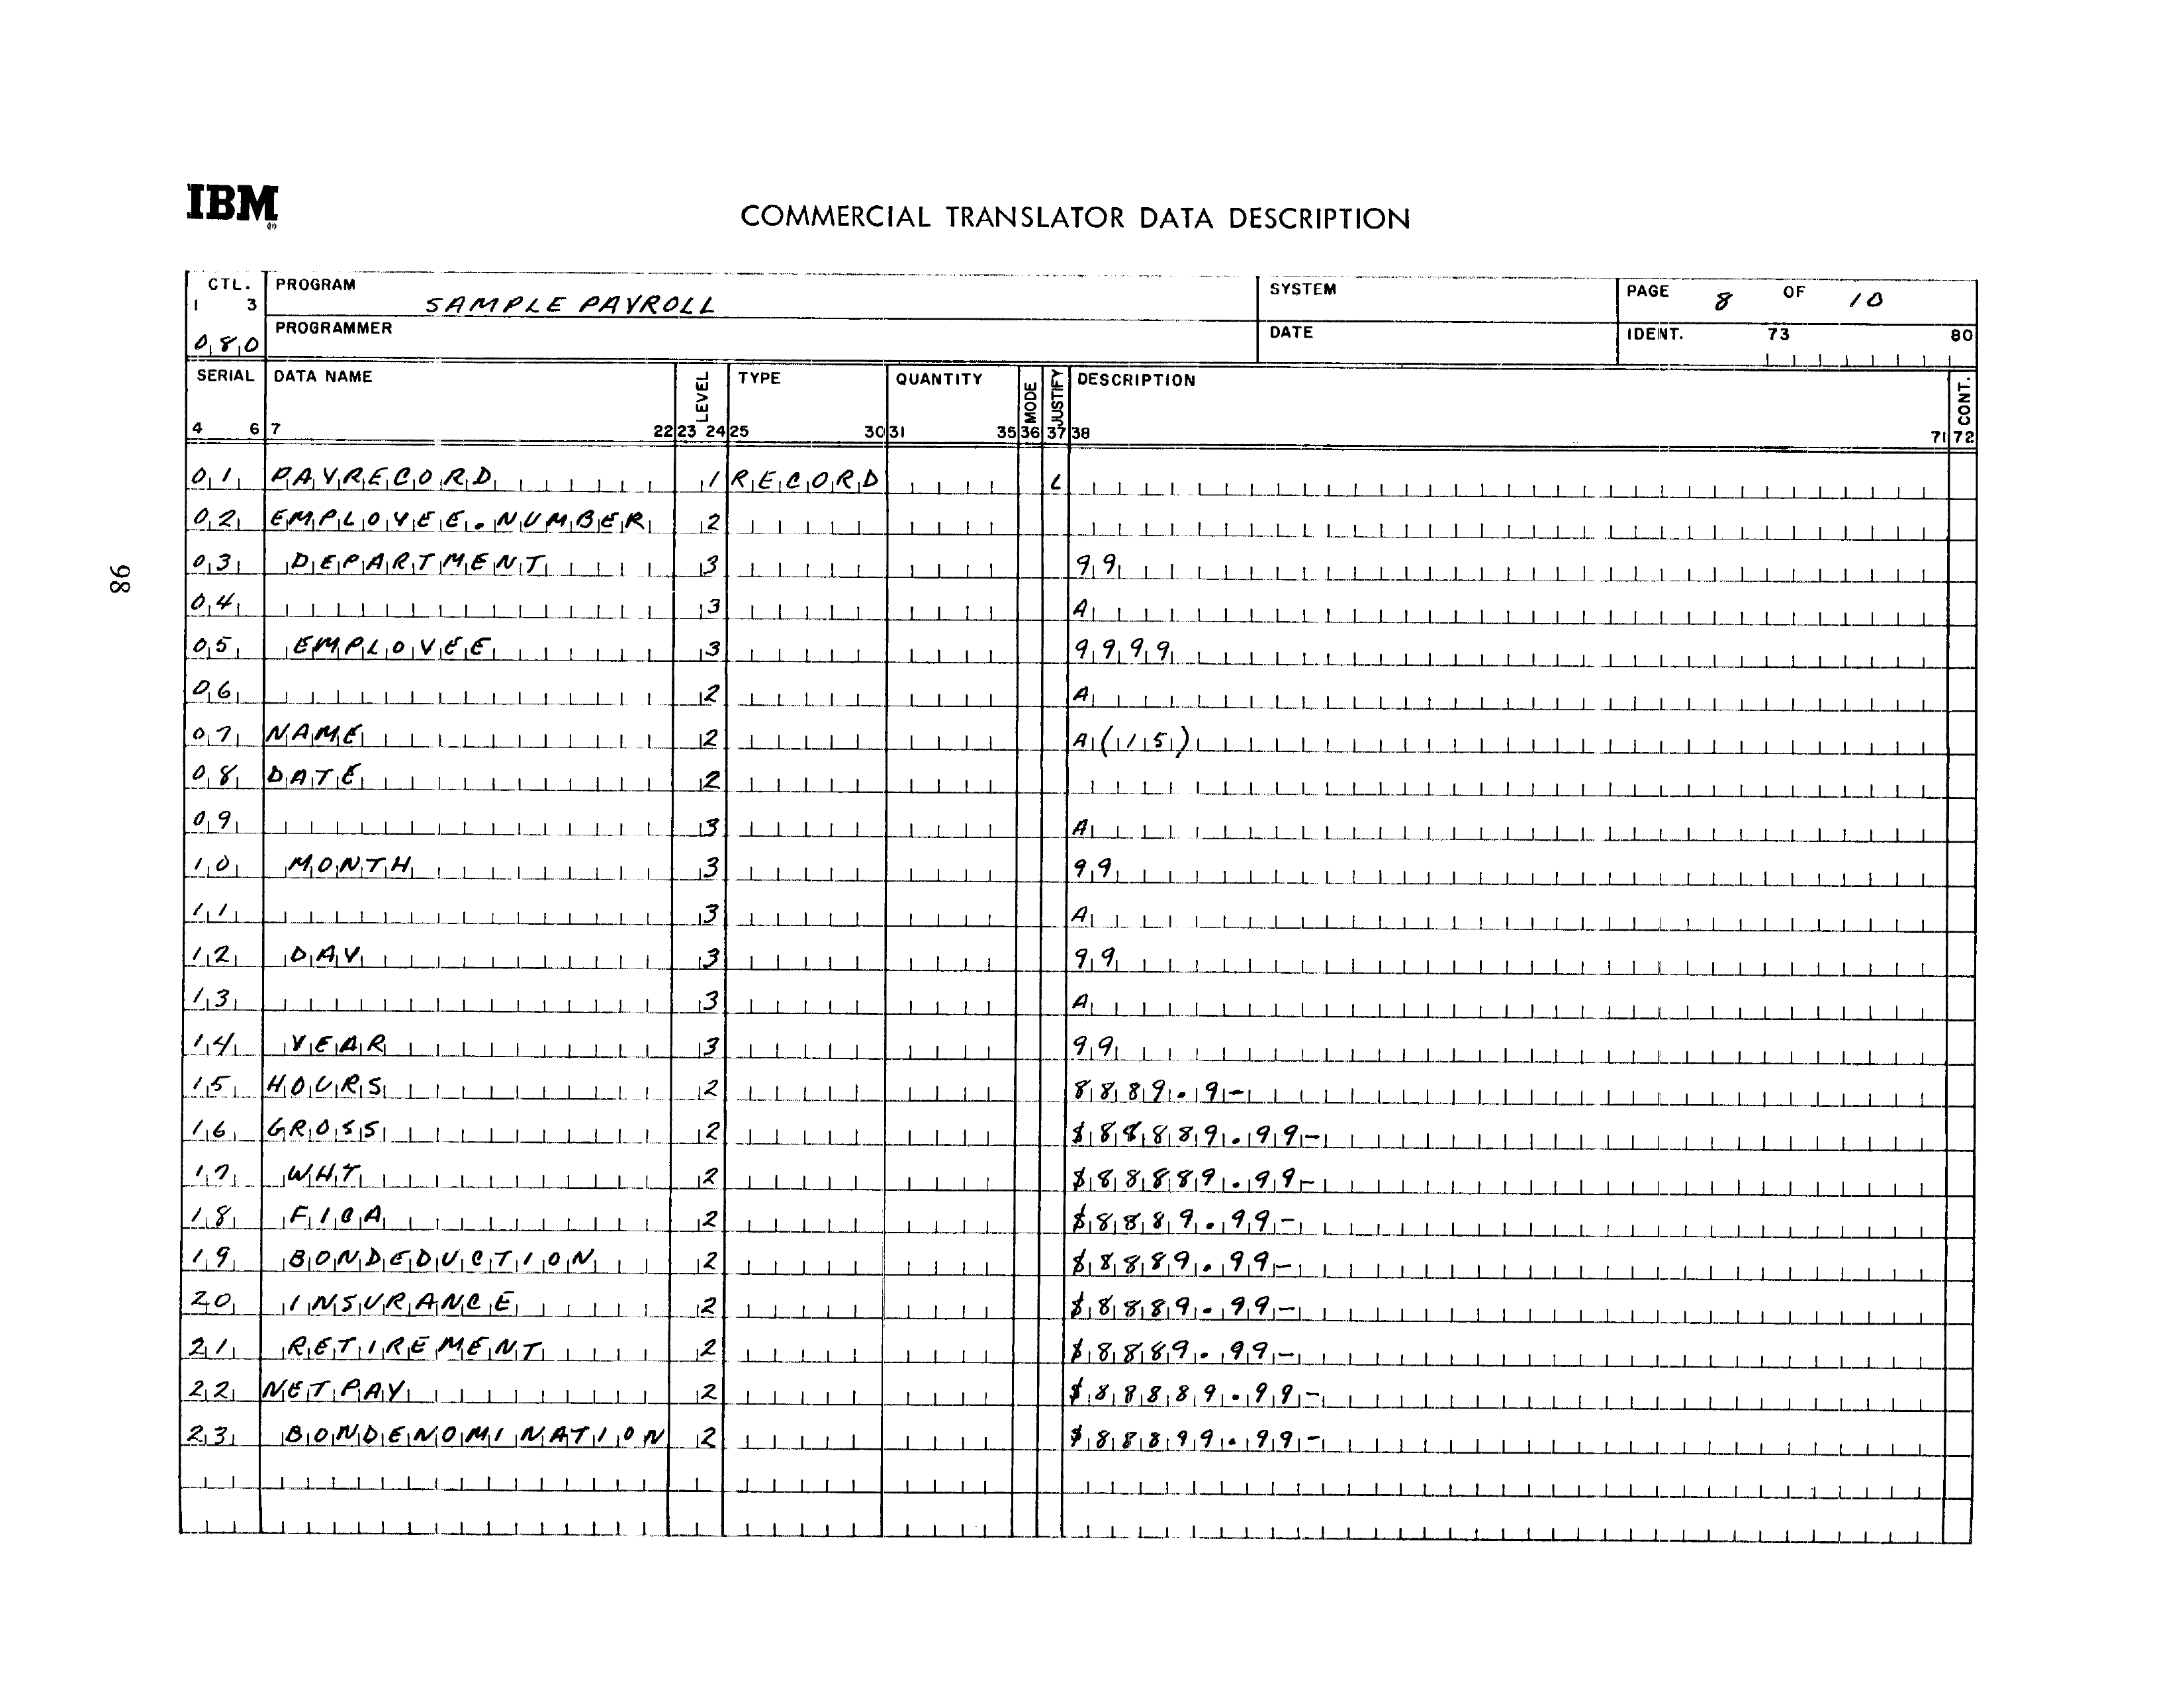 IBM
®
COMMERCIAL TRANSLATOR DATA DESCRIPTION
CTL. PROGRAM SYSTEM PAGE 8 OF 10
1 3 SAMPLE PAYROLL
080 PROGRAMMER DATE IDENT. 73 80
SERIAL DATA NAME LEVEL TYPE QUANTITY MODE JUSTIFY DESCRIPTION CONT.
4 6 7 22 23 24 25 30 31 35 36 37 38 71 72
01 PAYRECORD 1 RECORD L
02 EMPLOYEE.NUMBER 2
03 DEPARTMENT 3 99
04 3 A
05 EMPLOYEE 3 9999
06 2 A
07 NAME 2 A(15)
08 DATE 2
09 3 A
10 MONTH 3 99
11 3 A
12 DAY 3 99
13 3 A
14 YEAR 3 99
15 HOURS 2 8889.9-
16 GROSS 2 $88889.99-
17 WHT 2 $88889.99-
18 FICA 2 $8889.99-
19 BONDEDUCTION 2 $8889.99-
20 INSURANCE 2 $8889.99-
21 RETIREMENT 2 $8889.99-
22 NETPAY 2 $88889.99-
23 BONDENOMINATION 2 $88899.99-
98